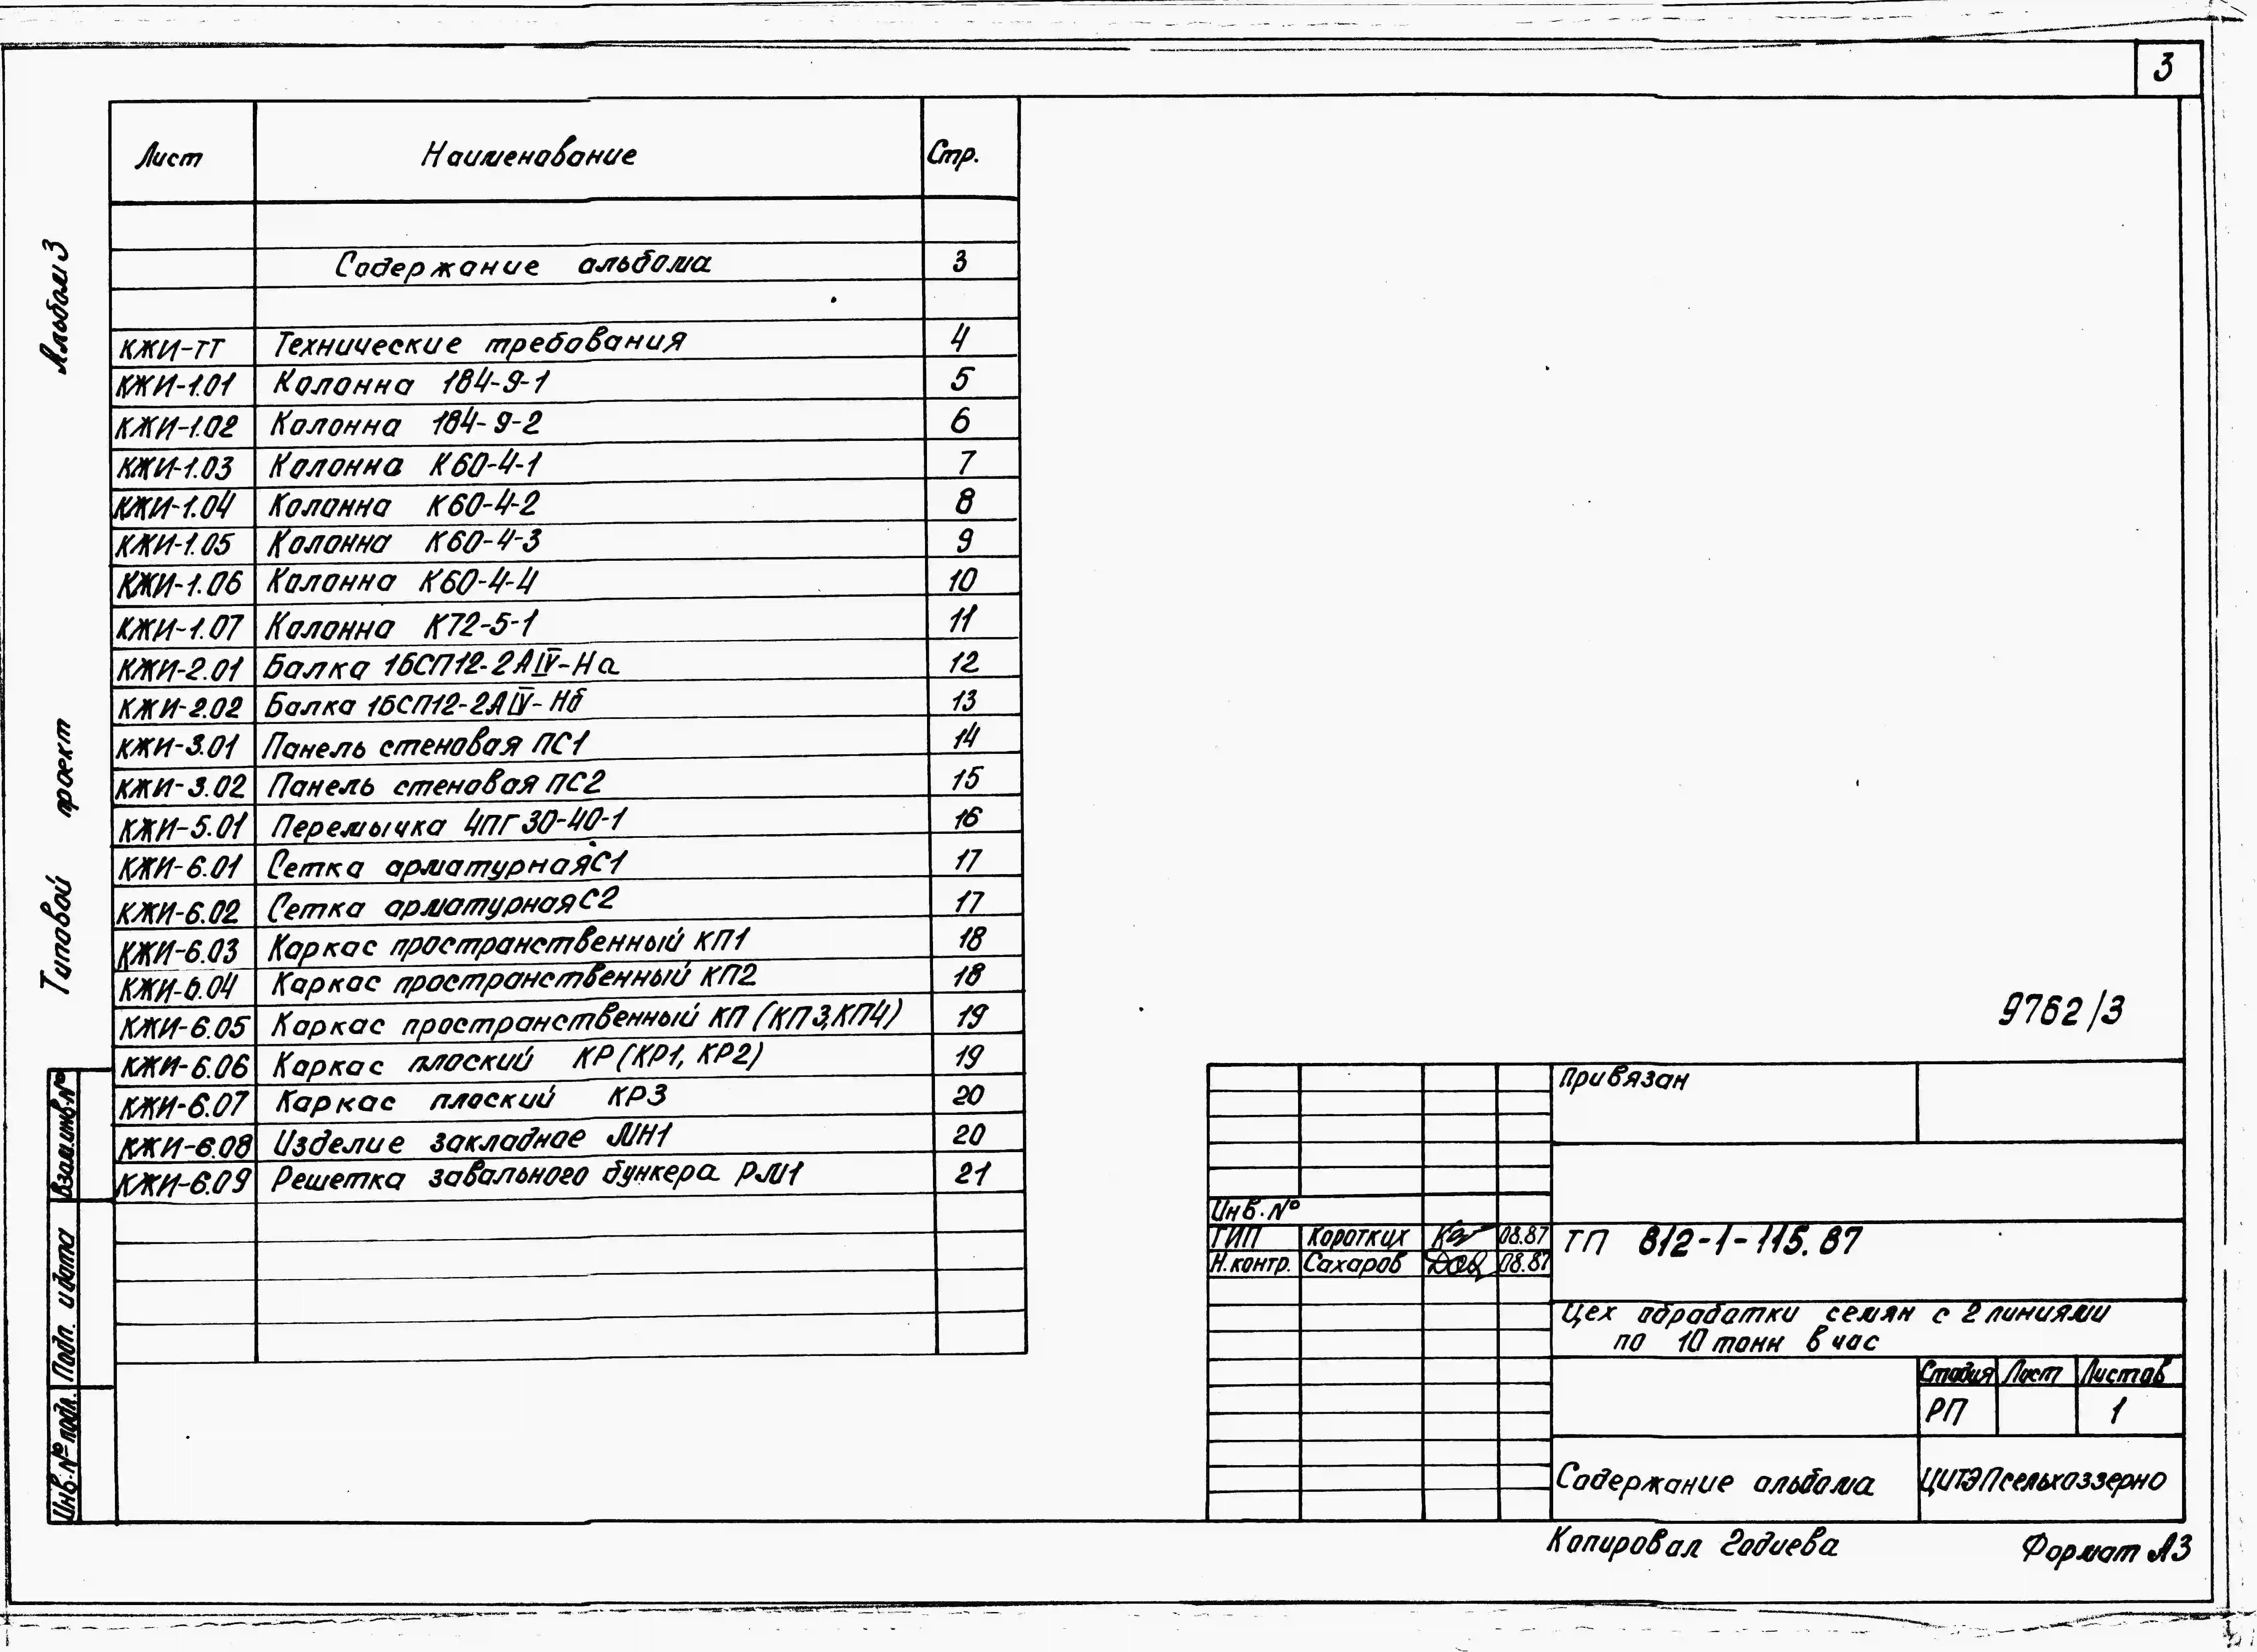 3
Альбом 3
Типовой проект
Лист Наименование Стр.
Содержание альбома 3
КЖИ-ТТ Технические требования 4
КЖИ-1.01 Колонна 184-9-1 5
КЖИ-1.02 Колонна 184-9-2 6
КЖИ-1.03 Колонна К60-4-1 7
КЖИ-1.04 Колонна К60-4-2 8
КЖИ-1.05 Колонна К60-4-3 9
КЖИ-1.06 Колонна К60-4-4 10
КЖИ-1.07 Колонна К72-5-1 11
КЖИ-2.01 Балка 1БСП12-2АIV-На 12
КЖИ-2.02 Балка 1БСП12-2АIV-Нб 13
КЖИ-3.01 Панель стеновая ПС1 14
КЖИ-3.02 Панель стеновая ПС2 15
КЖИ-5.01 Перемычка 4ПГ30-40-1 16
КЖИ-6.01 Сетка арматурная С1 17
КЖИ-6.02 Сетка арматурная С2 17
КЖИ-6.03 Каркас пространственный КП1 18
КЖИ-6.04 Каркас пространственный КП2 18
КЖИ-6.05 Каркас пространственный КП (КП3, КП4) 19
КЖИ-6.06 Каркас плоский КР (КР1, КР2) 19
КЖИ-6.07 Каркас плоский КР3 20
КЖИ-6.08 Изделие закладное МН1 20
КЖИ-6.09 Решетка завального бункера РМ1 21
Взам.инв.№
Подп. и дата
Инв.№ подл.
9762/3
Привязан
Инв.№
ГИП Коротких 08.87
Н.контр. Сахаров 08.87
ТП 812-1-115.87
Цех обработки семян с 2 линиями
по 10 тонн в час
Стадия Лист Листов
РП 1
Содержание альбома
ЦИТЭПсельхоззерно
Копировал Годиева
Формат А3